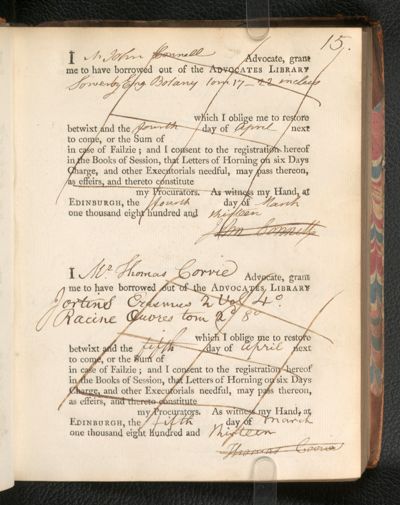 15.
I Mr John Connell Advocate, grant
me to have borrowed out of the ADVOCATES LIBRARY
Sowerby Eng Botany tom 17–22 inclus
which I oblige me to restore
betwixt and the fourth day of April next
to come, or the Sum of
in case of Failzie; and I consent to the registration hereof
in the Books of Session, that Letters of Horning on six Days
Charge, and other Executorials needful, may pass thereon,
as effeirs, and thereto constitute
my Procurators. As witness my Hand, at
EDINBURGH, the fourth day of March
one thousand eight hundred and thirteen
John Connell
I Mr. Thomas Corrie Advocate, grant
me to have borrowed out of the ADVOCATES LIBRARY
Jortins Erasmus 2 Vol 4o.
Racine Œuvres tom 2d 8o
which I oblige me to restore
betwixt and the fifth day of April next
to come, or the Sum of
in case of Failzie; and I consent to the registration hereof
in the Books of Session, that Letters of Horning on six Days
Charge, and other Executorials needful, may pass thereon,
as effeirs, and thereto constitute
my Procurators. As witness my Hand, at
EDINBURGH, the fifth day of March
one thousand eight hundred and thirteen
Thomas Corrie